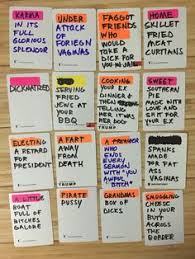 KARMA
IN ITS
FULL
GLORIOUS
SPLENDOR
UNDER
ATTACK
OF
FORIEGN
VAGINAS
FAGGOT
FRIENDS
WHO
WOULD
TAKE A
DICK FOR
YOU
HOME
SKILLET
FRIED
MEAT
CURTIANS
DICKHATRED
SERVING
FRIED
JEWS AT
YOUR
BBQ
COOKING
YOUR EX
DINNER &
THEN
TELLING
THEM
TRUMP
SWEET
SOUTHERN
PIE
MADE
WITH
LOVE
AND
ELECTING
A RETARD
FOR
PRESIDENT
A FART
AWAY
FROM
DEATH
A
WHO
ENDS
EVERY
SERMON
WITH "YOU
AWFUL
BITCH"
SPANKS
MADE
FOR FAT
ASS
VAGINAS
A LITTLE
BOAT
FULL OF
BITCHES
GALORE
PIRATE
PUSSY
GRANDMAS
BOX OF
DICKS
SMUGGLING
CHEESE IN
YOUR BUTT
ACROSS
THE
BORDER